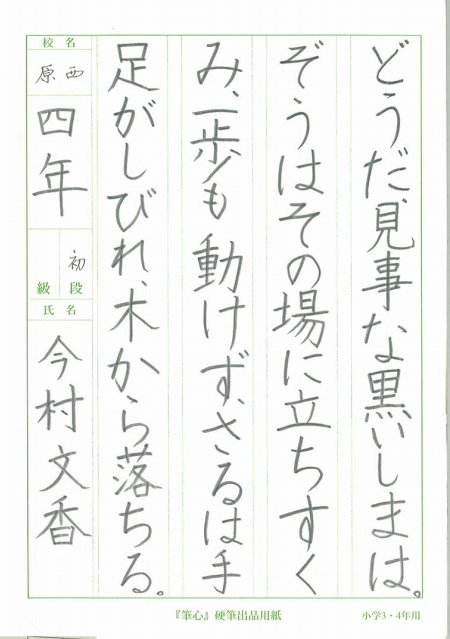 どうだ、見事な黒いしまは。
ぞうはその場に立ちすく
み、一歩も動けず、さるは手
足がしびれ、木から落ちる。
校名
原西
四年
初
級段
氏名
今村文香
『筆心』硬筆出品用紙
小学3・4年用